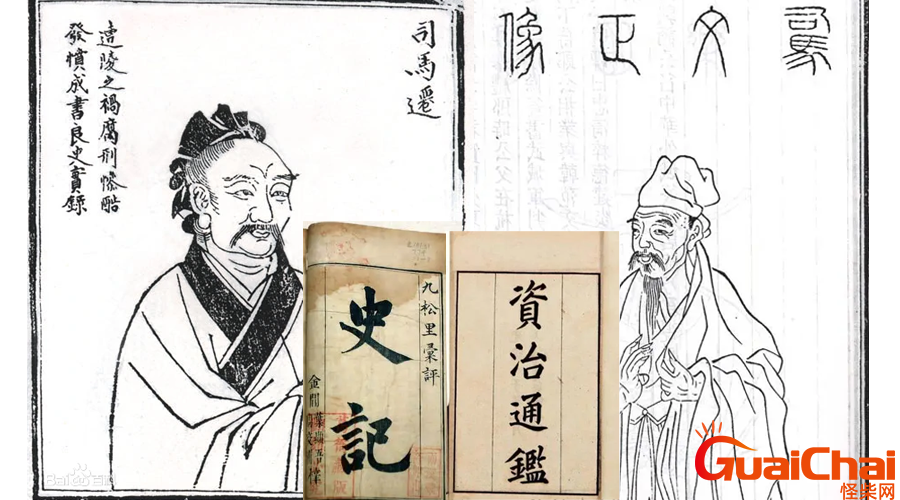 司馬遷
遭陵之禍腐刑慘酷
發憤成書良史實錄
司馬文正像
九松里彙評
史記
資治通鑑
Baidu百科
GuaiChai
怪柴网